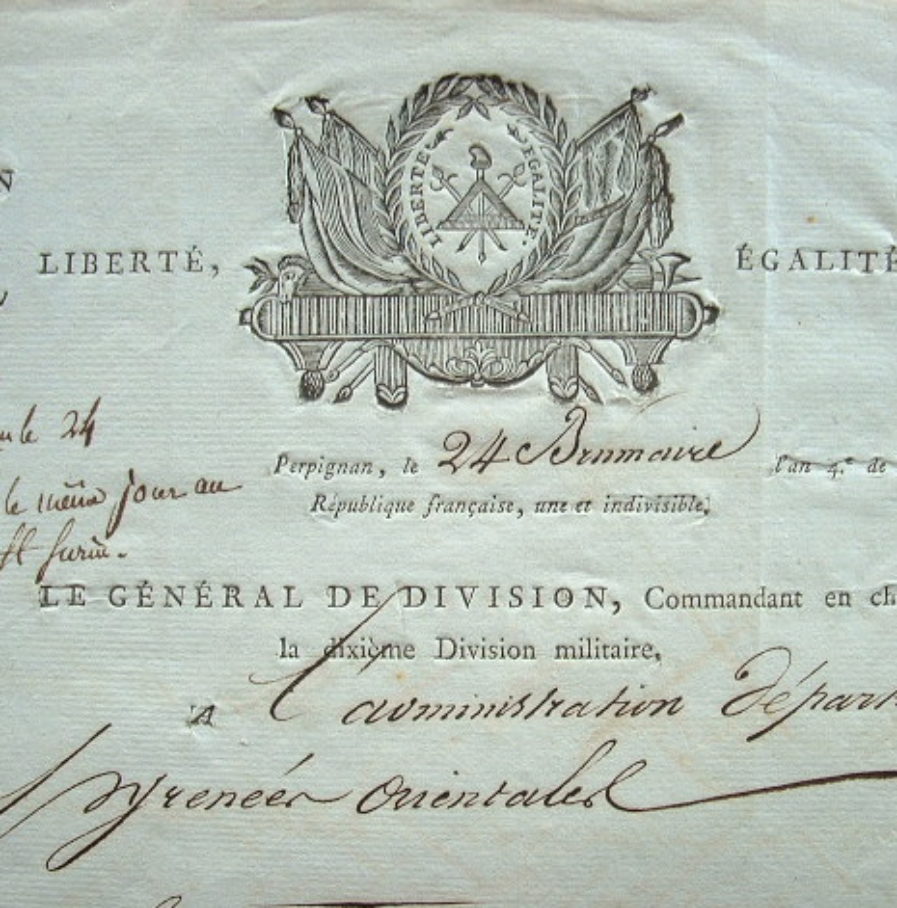 N
LIBERTÉ
ÉGALITÉ.
LIBERTÉ, ÉGALITÉ
24
Perpignan, le 24 Brumaire l'an 4.e de
le même jour au
République française, une et indivisible,
LE GÉNÉRAL DE DIVISION, Commandant en ch
la dixième Division militaire,
A l'administration départ
pyrenées orientales